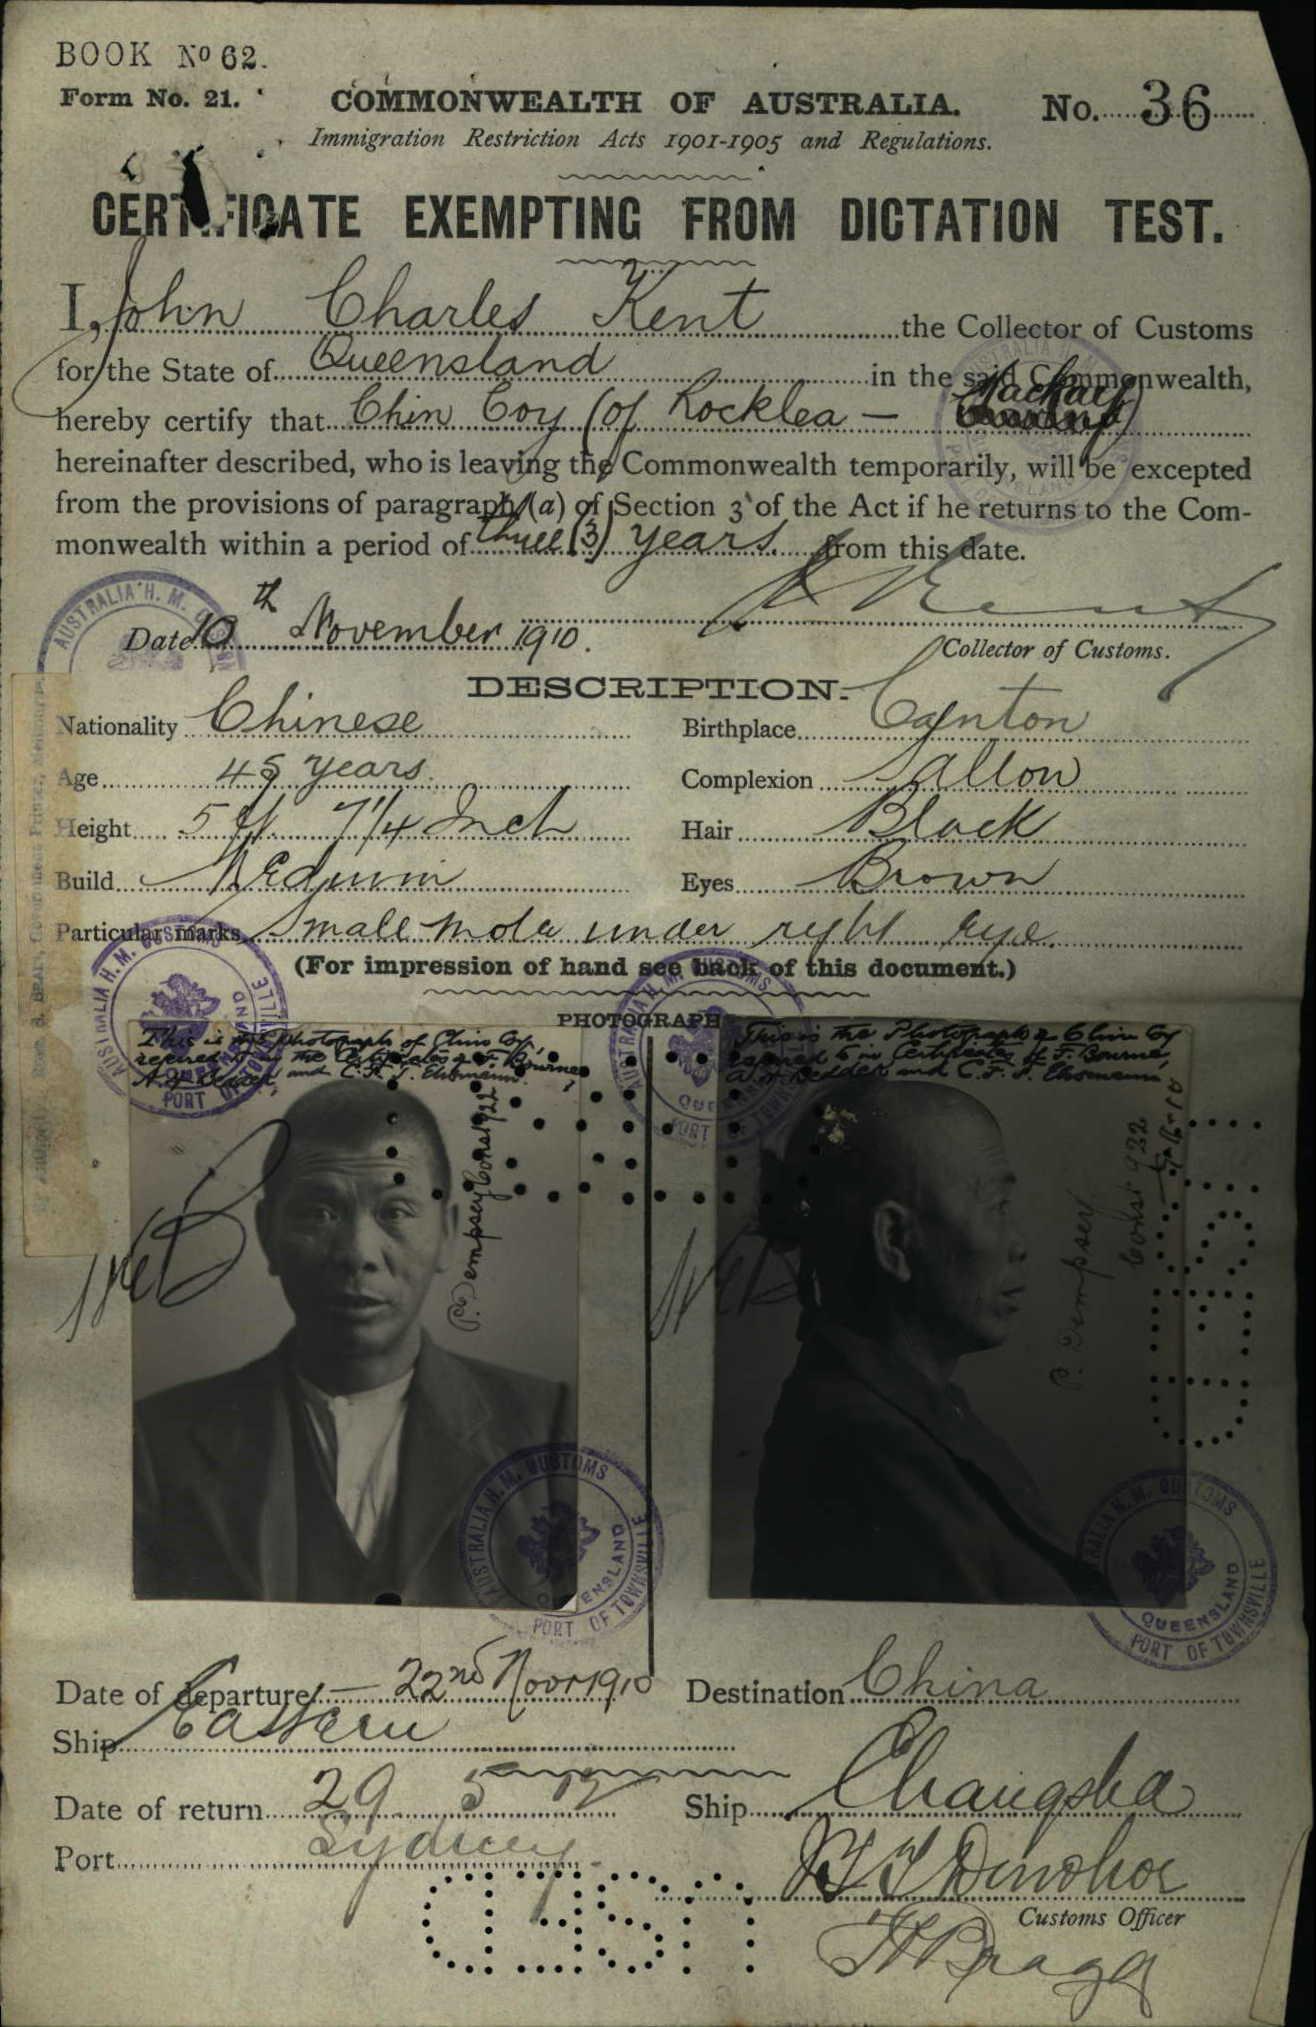 BOOK No 62.
Form No. 21.
COMMONWEALTH OF AUSTRALIA.
No. 36
Immigration Restriction Acts 1901-1905 and Regulations.
CERTIFICATE EXEMPTING FROM DICTATION TEST.
I, John Charles Kent the Collector of Customs
for the State of Queensland in the said Commonwealth,
hereby certify that Chin Coy (of Rocklea - Mackay)
hereinafter described, who is leaving the Commonwealth temporarily, will be excepted
from the provisions of paragraph (a) of Section 3 of the Act if he returns to the Com-
monwealth within a period of three (3) years from this date.
Date 10th November 1910.
Collector of Customs.
DESCRIPTION.
Nationality Chinese
Birthplace Canton
Age 45 years
Complexion Sallow
Height 5 ft 7 1/4 Inch
Hair Black
Build Medium
Eyes Brown
Particular marks Small mole under right eye.
(For impression of hand see back of this document.)
PHOTOGRAPHS
This is the Photograph of Chin Coy
referred to in the Certificates of F. Bourne,
and C.F.T.
P. Dempsey Const 922
This is the Photograph of Chin Coy
referred to in Certificates of F. Bourne,
and C.F.T.
P. Dempsey
Const 922
AUSTRALIA H. M. CUSTOMS
QUEENSLAND
PORT OF TOWNSVILLE
AUSTRALIA H. M. CUSTOMS
QUEENSLAND
PORT OF TOWNSVILLE
Date of departure - 22nd Novr 1910
Destination China
Ship Eastern
Date of return 29 5 12
Ship Changsha
Port Sydney
Customs Officer
USED